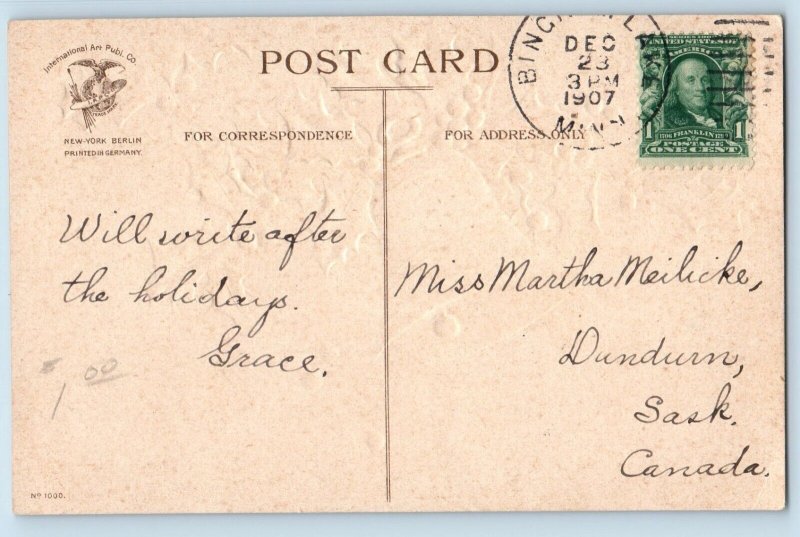 International Art Publ. Co.
NEW-YORK BERLIN
PRINTED IN GERMANY.
POST CARD
FOR CORRESPONDENCE
FOR ADDRESS ONLY
DEC
23
3 PM
1907
MINN
UNITED STATES OF
AMERICA
1 FRANKLIN 1
POSTAGE
ONE CENT
Will write after
the holidays.
Grace.
$1.00
Miss Martha Meilicke,
Dundurn,
Sask.
Canada.
Nº 1000.